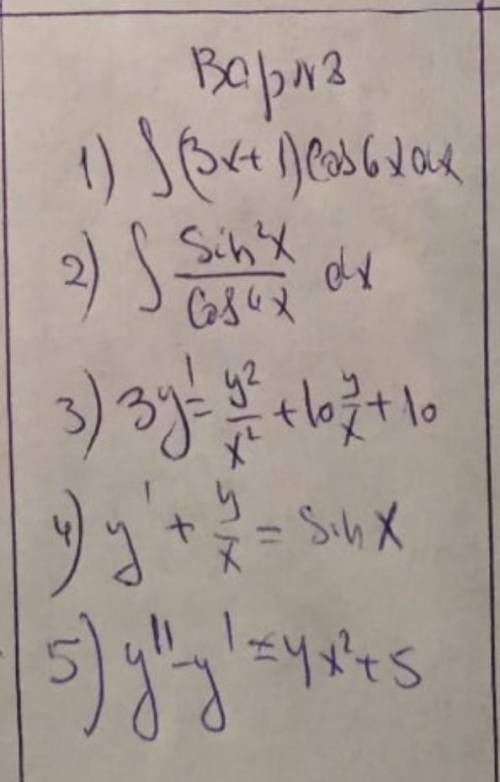 Вар №3
1) ∫(3x+1)cos6xdx
2) ∫ sin²x / cos⁴x dx
3) 3y' = y²/x² + 10 y/x + 10
4) y' + y/x = sin x
5) y'' - y' = 4x² + 5